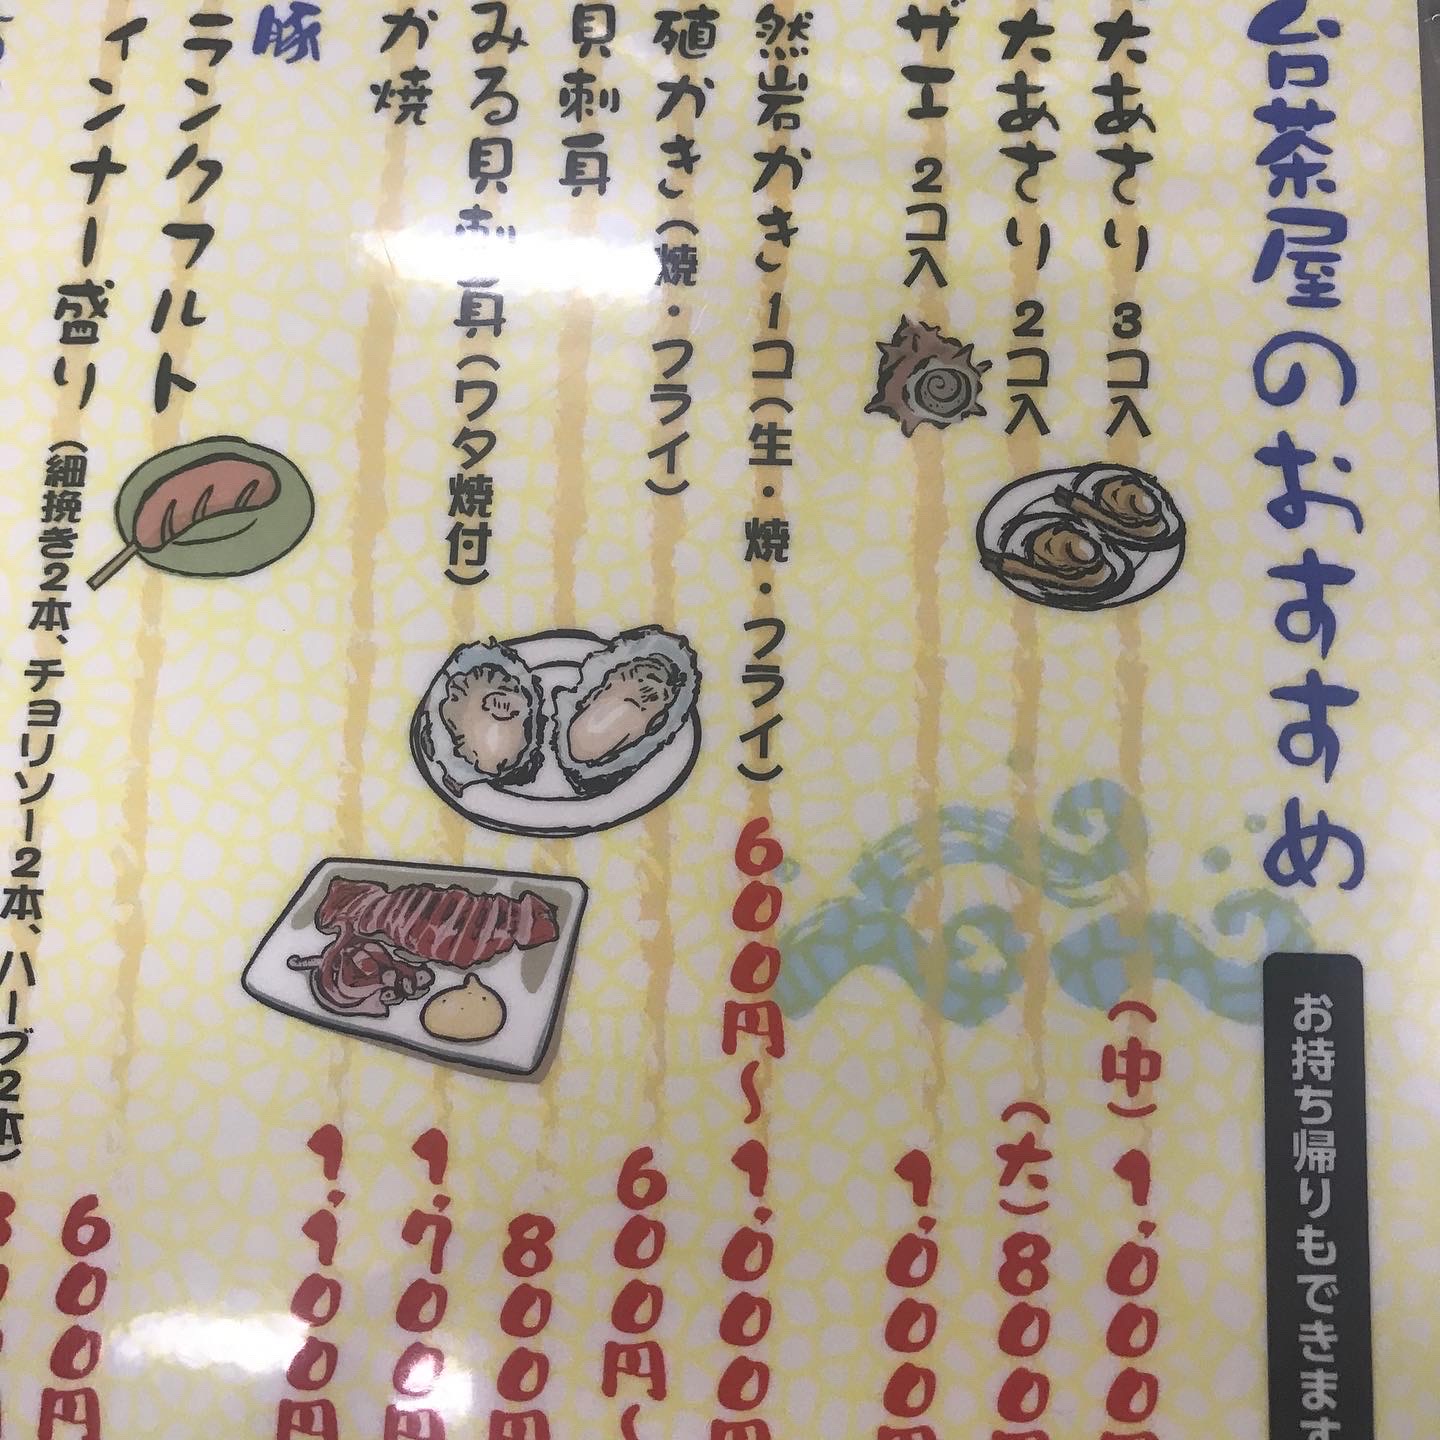 台茶屋のおすすめ
お持ち帰りもできます
大あさり 3コ入 (中) 1,000
大あさり 2コ入 (大) 800
ザエ 2コ入 1,000
然岩かき 1コ(生・焼・フライ) 600円〜1,000円
殖かき(焼・フライ) 600円〜
貝刺身 800円
みる貝刺身(ワタ焼付) 1,700円
か焼 1,100円
豚
ランクフルト 600円
ィンナー盛り(細挽き2本、チョリソー2本、ハーブ2本)